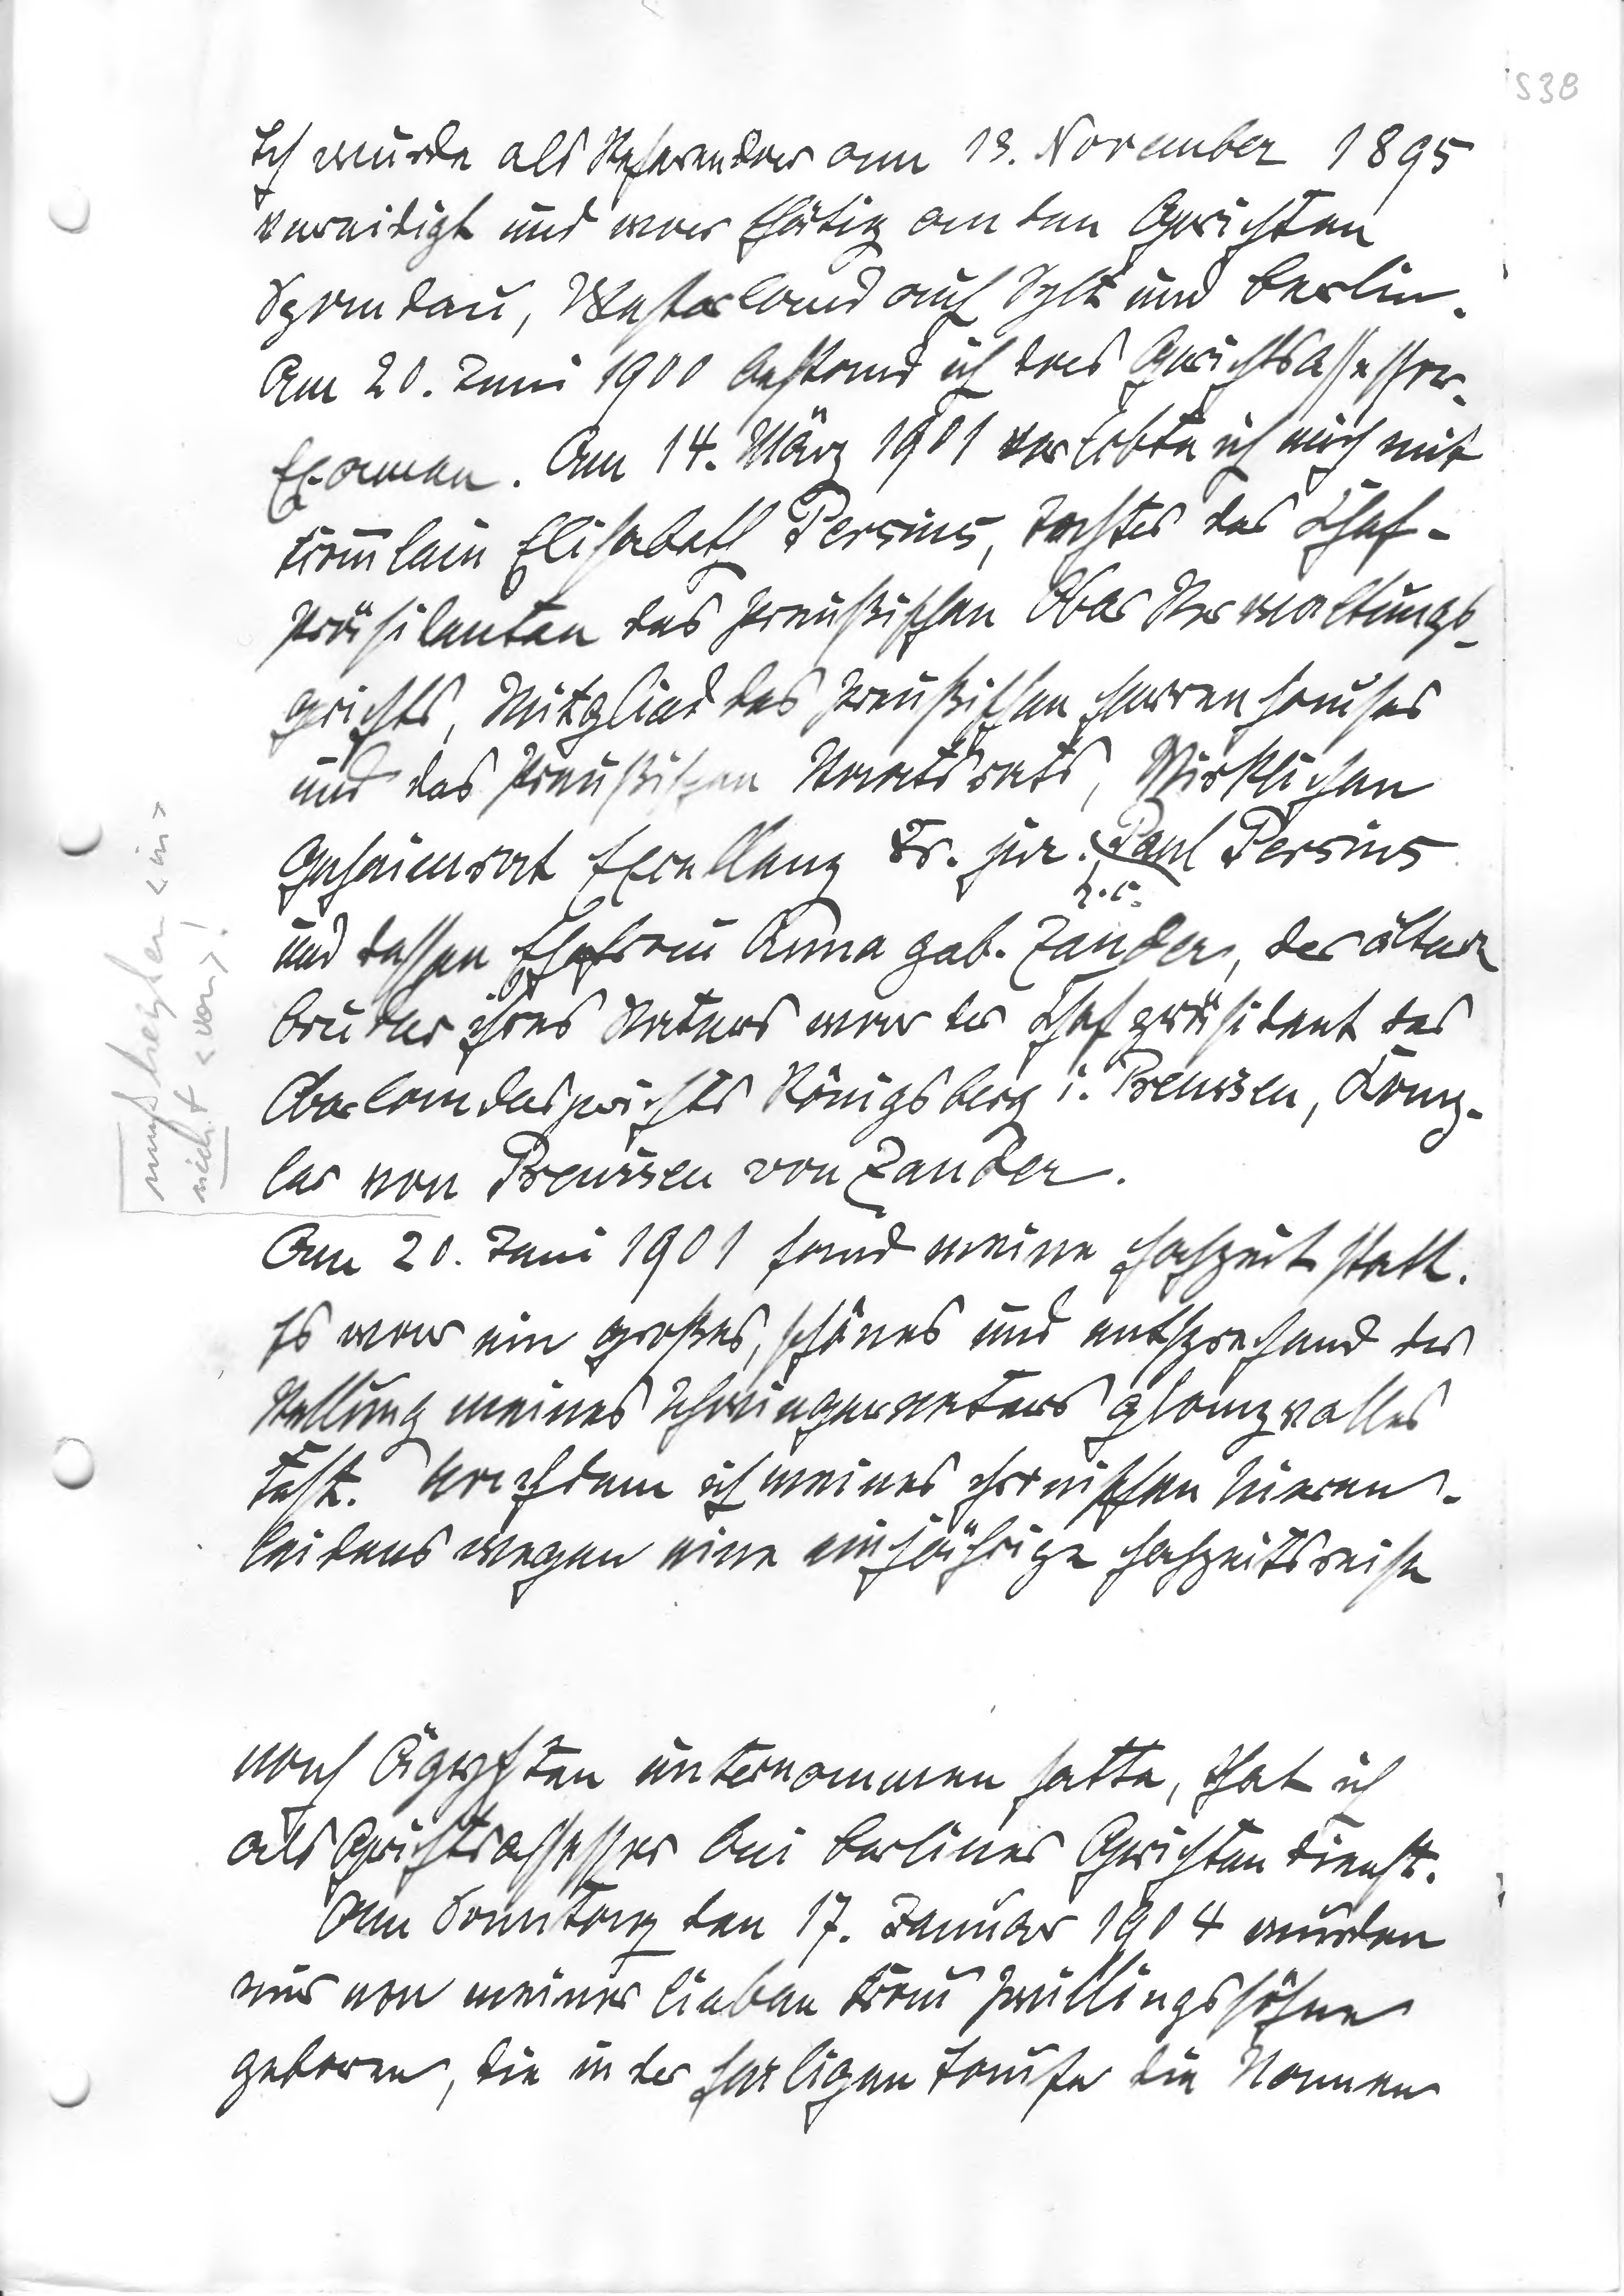 S38
Ich wurde als Referendar am 13. November 1895
vereidigt und war thätig an den Gerichten
Spandau, Westerland auf Sylt und Berlin.
Am 20. Juni 1900 bestand ich das Gerichtsassessor-
Examen. Am 14. März 1901 verlobte ich mich mit
Fräulein Elisabeth Persius, Tochter des Chef-
präsidenten des preußischen Ober Verwaltungs-
gerichts, Mitglied des preußischen Herrenhauses
und des preußischen Staatsrats, Wirklichen
Geheimrat Excellenz Dr. jur. Paul Persius
h.c.
und dessen Ehefrau Anna geb. Zander, der ältere
Bruder ihres Vaters war der Chefpräsident des
Oberlandesgerichts Königsberg i. Preussen, Kanz-
ler von Preussen von Zander.
muß heißen <in>
nicht <von>!
Am 20. Juni 1901 fand meine Hochzeit statt.
Es war ein großes, schönes und entsprechend der
Stellung meines Schwiegervaters glanzvolles
Fest. Nachdem ich meines chronischen Nieren-
leidens wegen eine einjährige Hochzeitsreise
nach Ägypten unternommen hatte, that ich
als Gerichtsassessor bei Berliner Gerichten Dienst.
Am Sonntag den 17. Januar 1904 wurden
mir von meiner lieben Frau Zwillingssöhne
geboren, die in der heiligen Taufe die Namen